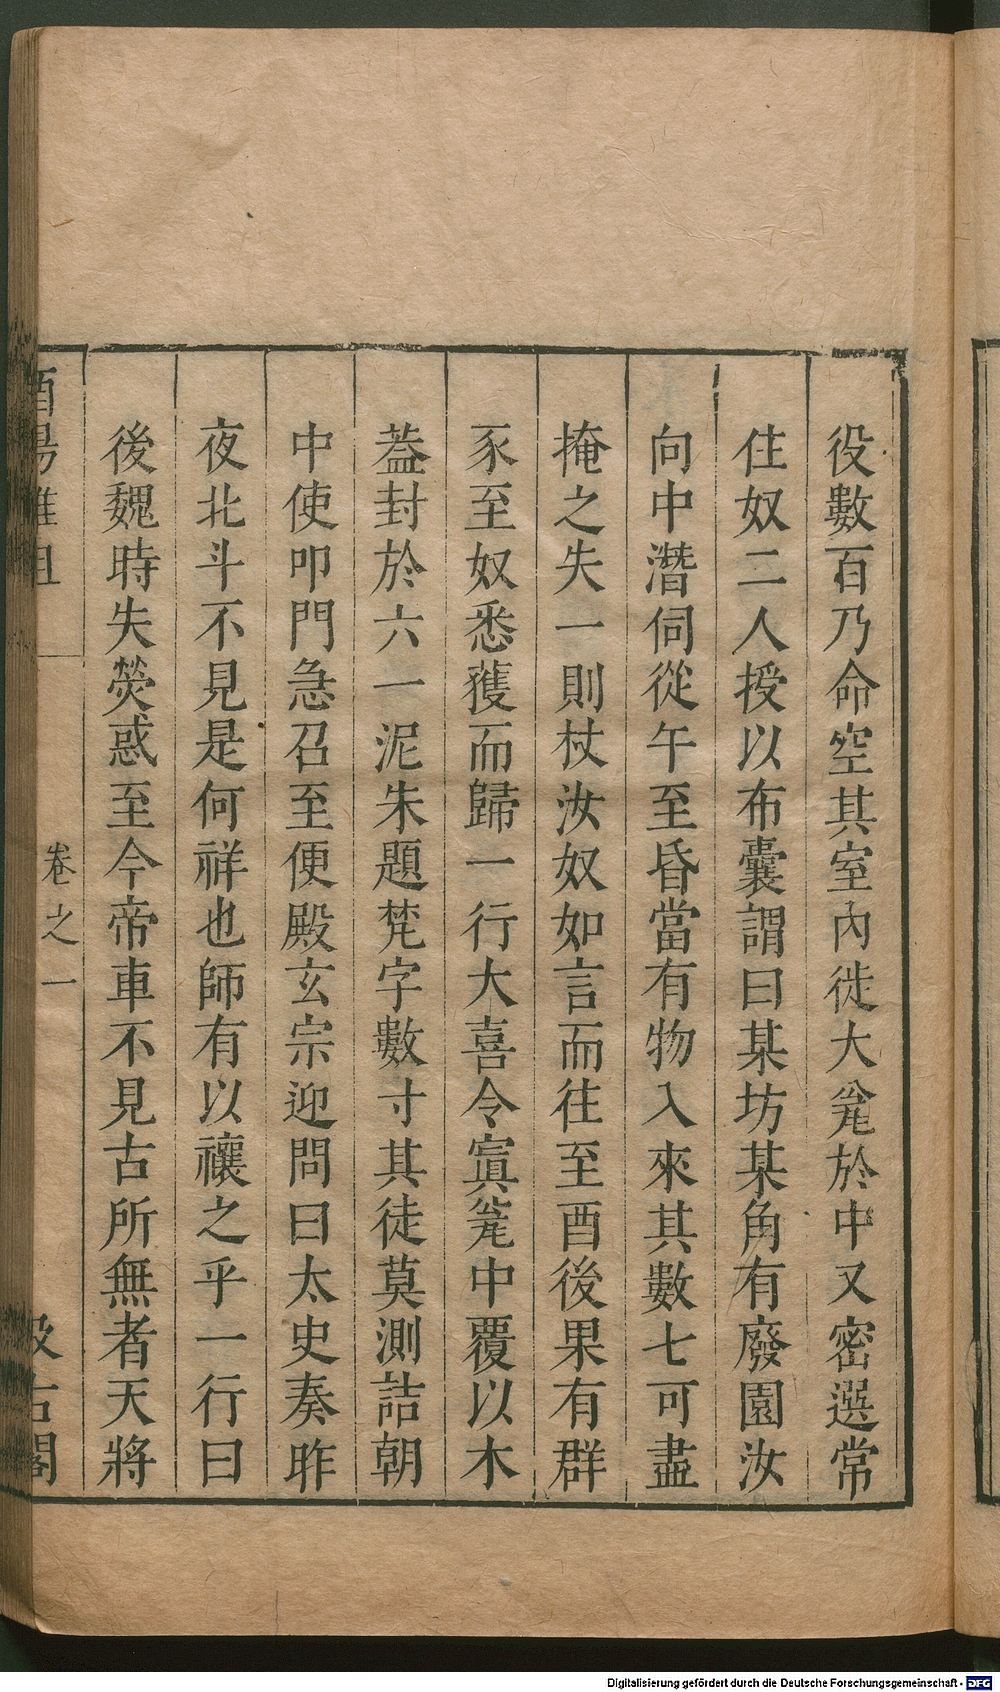 役數百乃命空其室內徙大瓮於中又密選常
住奴二人授以布囊謂曰某坊某角有廢園汝
向中潛伺從午至昏當有物入來其數七可盡
掩之失一則杖汝奴如言而往至酉後果有群
豕至奴悉獲而歸一行大喜令寘瓮中覆以木
葢封於六一泥朱題梵字數寸其徒莫測詰朝
中使叩門急召至便殿玄宗迎問曰太史奏昨
夜北斗不見是何祥也師有以禳之乎一行曰
後魏時失熒惑至今帝車不見古所無者天將
酉陽雜俎 卷之一 汲古閣
Digitalisierung gefördert durch die Deutsche Forschungsgemeinschaft - DFG